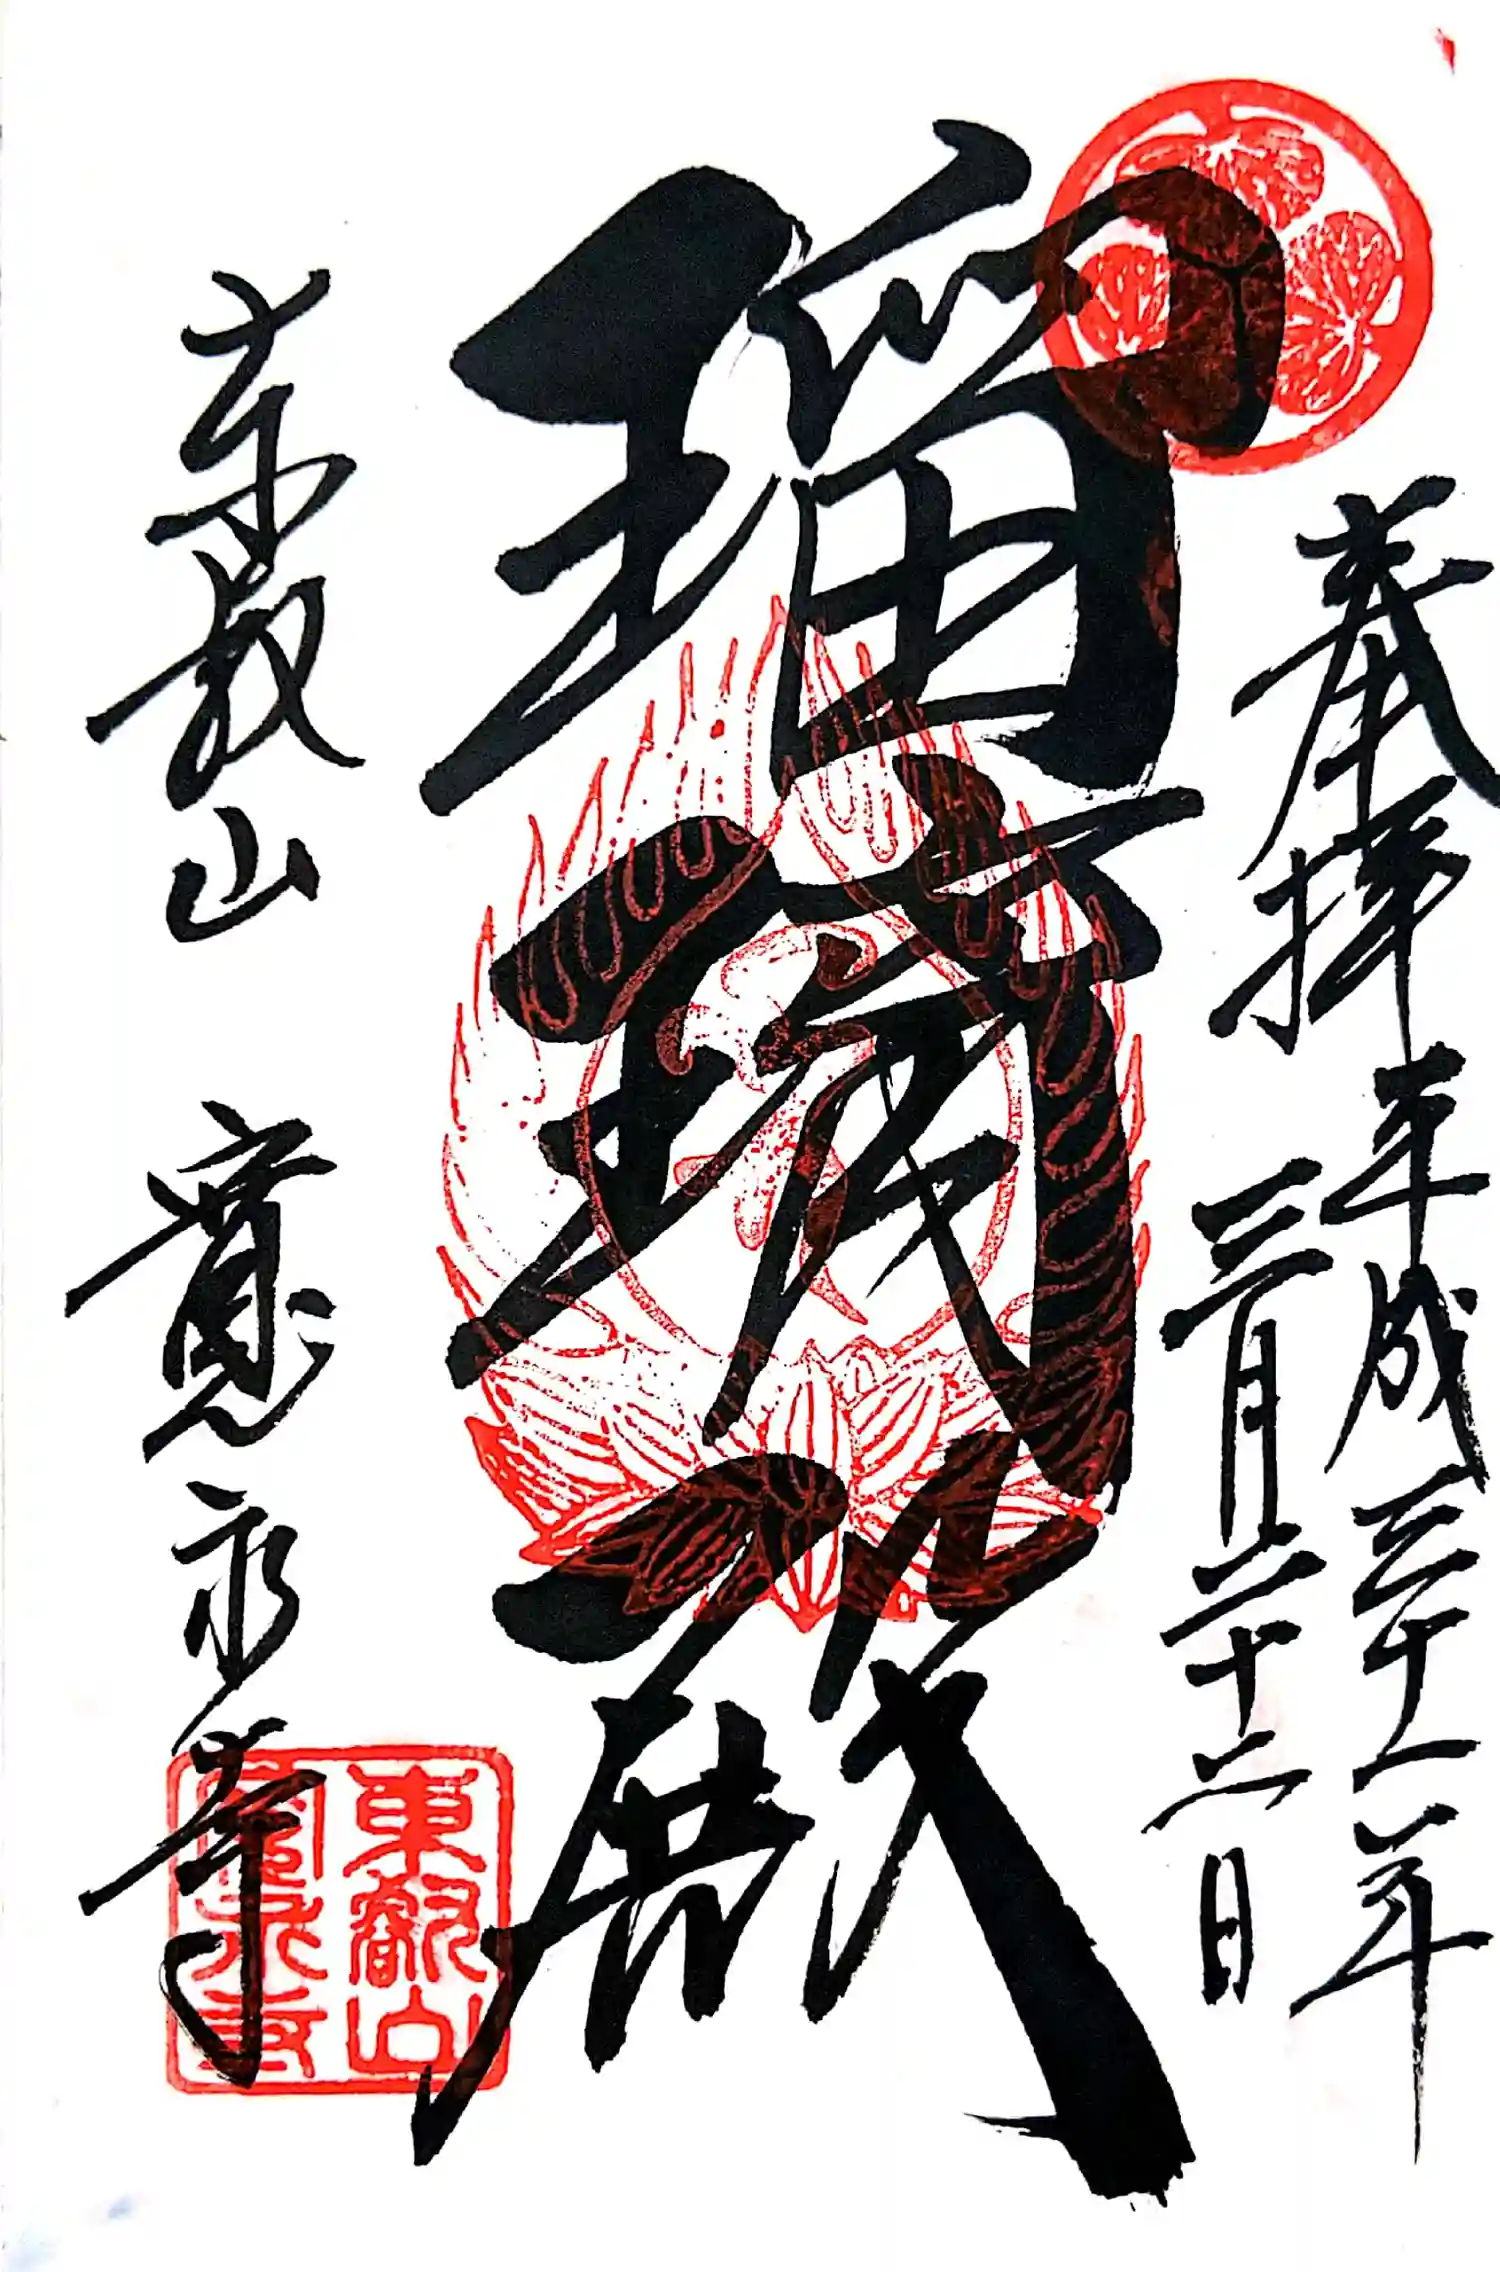 奉拝
平成三十一年
三月二十二日
瑠璃殿
東叡山 寛永寺
東叡山
寛永寺